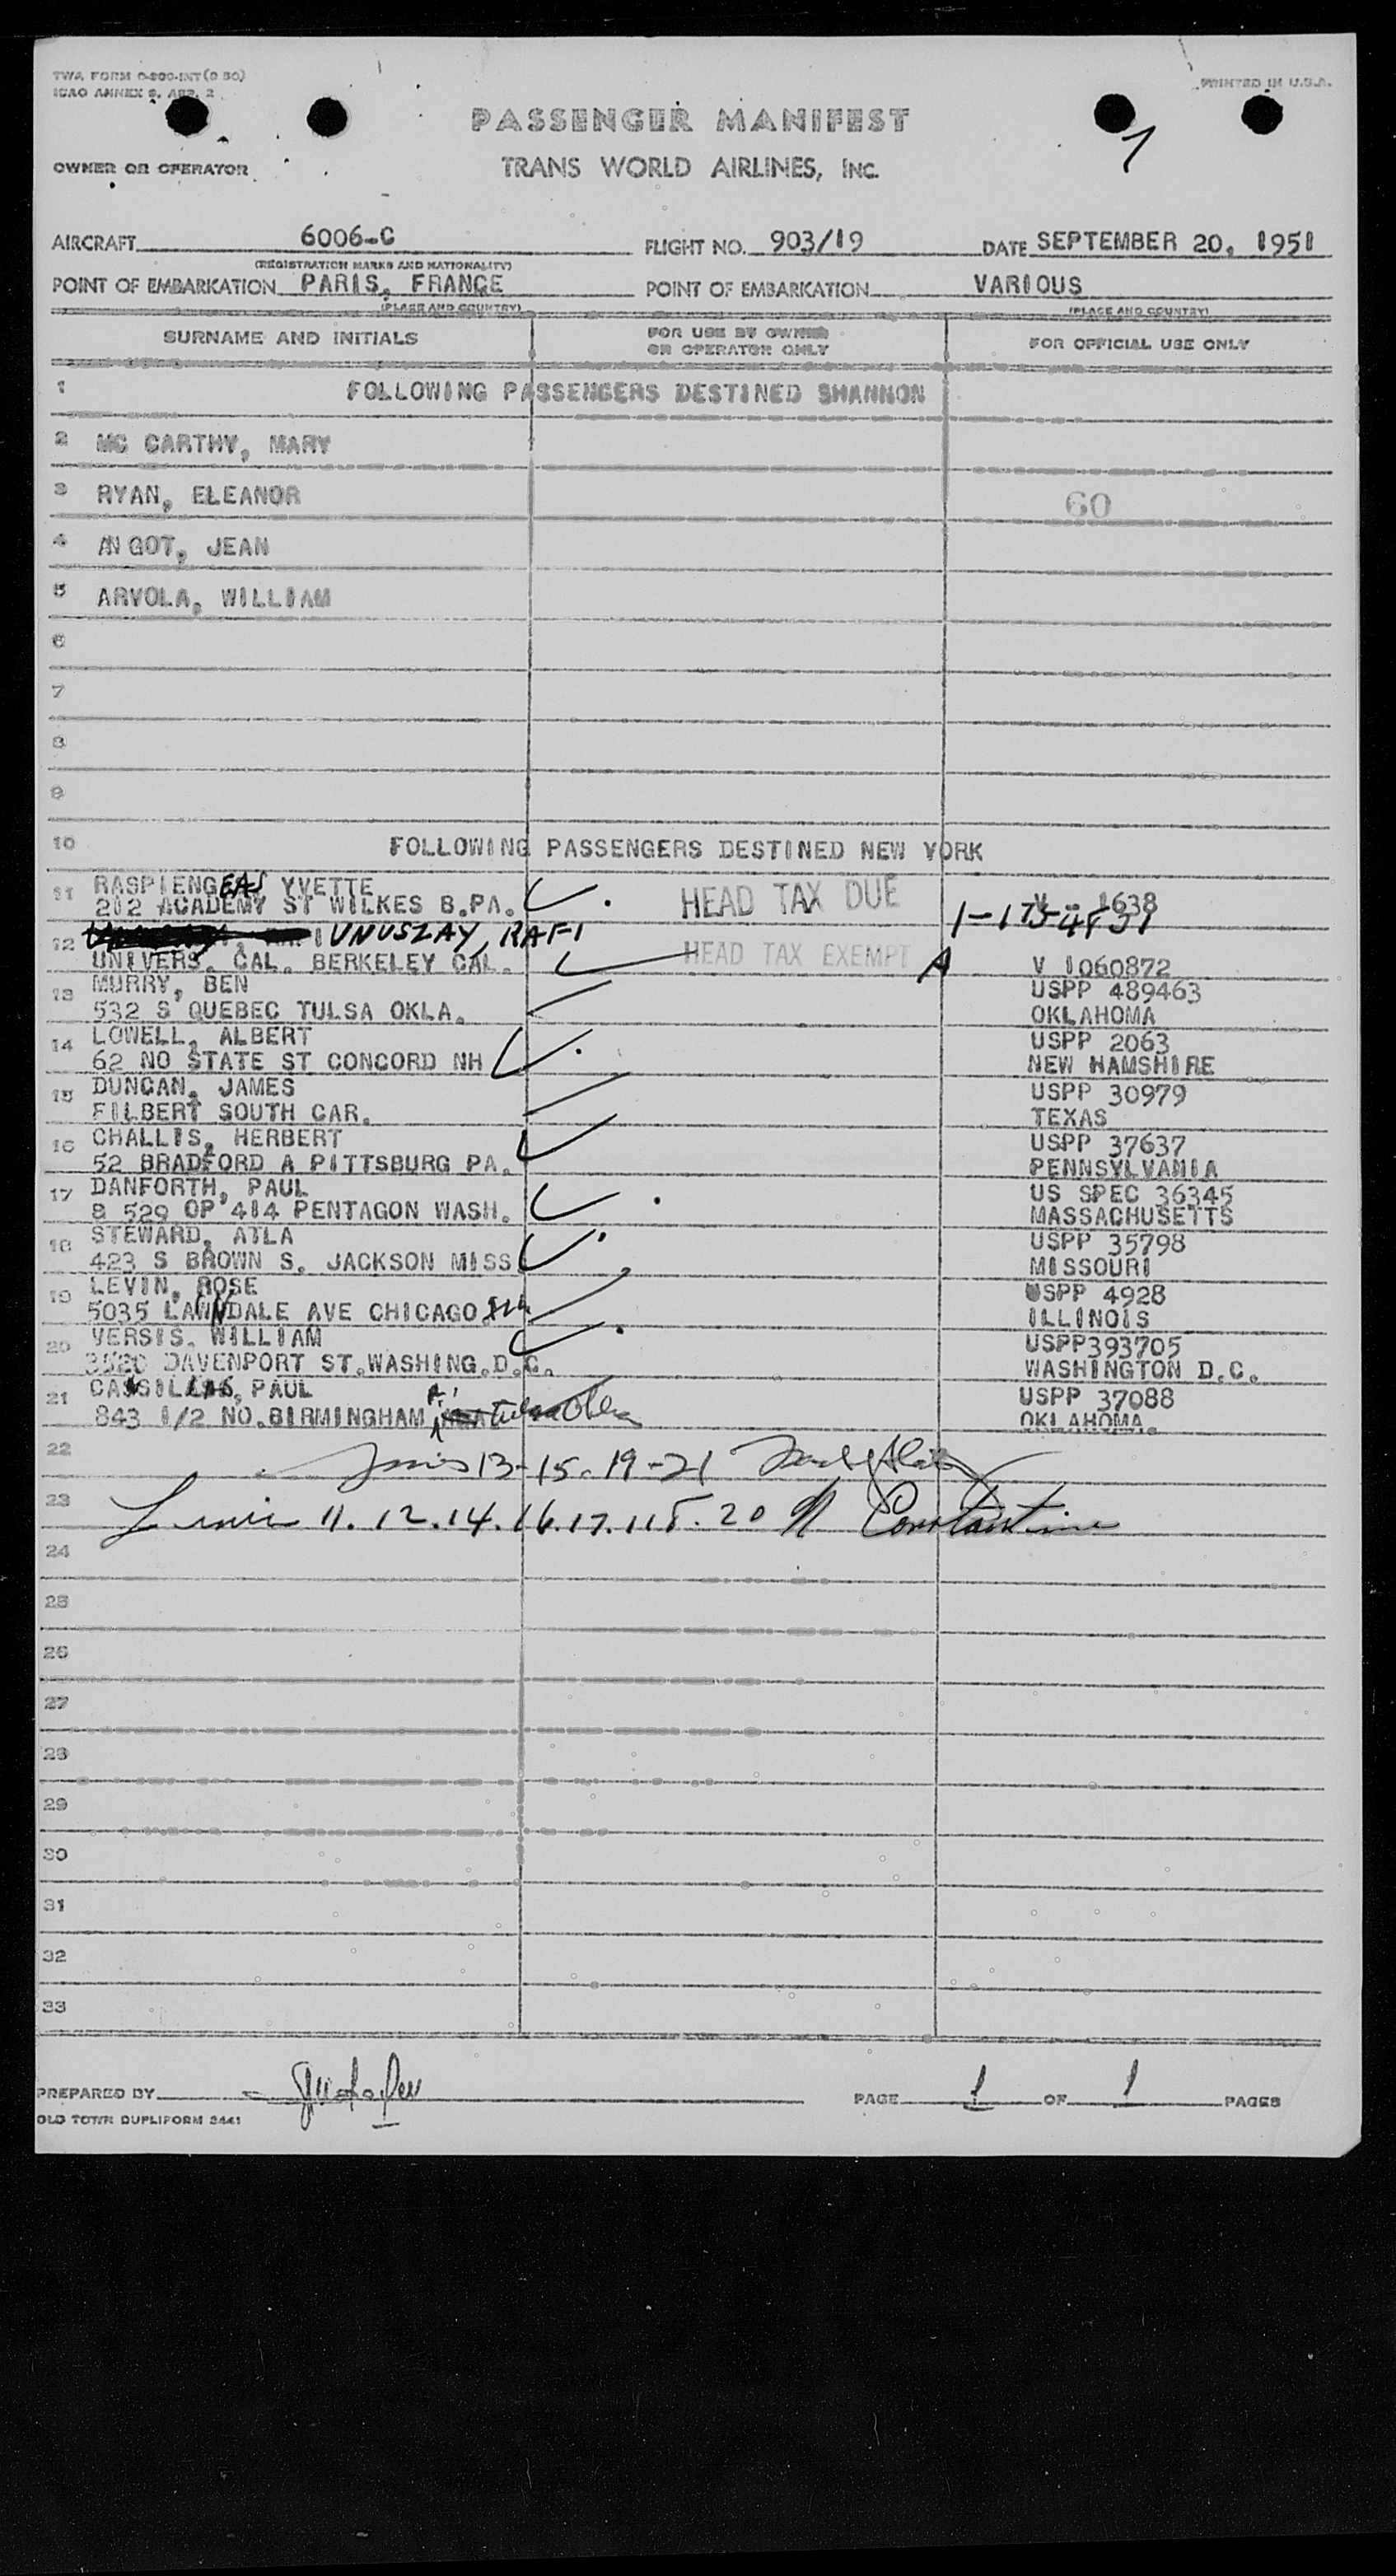 TWA FORM O-800-INT (9 50)
ICAO ANNEX 9, APP. 2
PRINTED IN U.S.A.
PASSENGER MANIFEST
1
OWNER OR OPERATOR
TRANS WORLD AIRLINES, INC.
AIRCRAFT 6006-C FLIGHT NO. 903/19 DATE SEPTEMBER 20, 1951
(REGISTRATION MARKS AND NATIONALITY)
POINT OF EMBARKATION PARIS, FRANCE POINT OF EMBARKATION VARIOUS
(PLACE AND COUNTRY) (PLACE AND COUNTRY)
SURNAME AND INITIALS FOR USE BY OWNER OR OPERATOR ONLY FOR OFFICIAL USE ONLY
1 FOLLOWING PASSENGERS DESTINED SHANNON
2 MC CARTHY, MARY
3 RYAN, ELEANOR 60
4 ANGOT, JEAN
5 ARVOLA, WILLIAM
6
7
8
9
10 FOLLOWING PASSENGERS DESTINED NEW YORK
11 RASPIENGEAS YVETTE HEAD TAX DUE V - 1638
212 ACADEMY ST WILKES B.PA.
12 UNUSZAY, RAFI HEAD TAX EXEMPT A
UNIVERS. CAL. BERKELEY CAL. V 1060872
13 MURRY, BEN USPP 489463
532 S QUEBEC TULSA OKLA. OKLAHOMA
14 LOWELL, ALBERT USPP 2063
62 NO STATE ST CONCORD NH NEW HAMSHIRE
15 DUNCAN, JAMES USPP 30979
FILBERT SOUTH CAR. TEXAS
16 CHALLIS, HERBERT USPP 37637
52 BRADFORD A PITTSBURG PA. PENNSYLVANIA
17 DANFORTH, PAUL US SPEC 36345
B 529 OP 414 PENTAGON WASH. MASSACHUSETTS
18 STEWARD, ATLA USPP 35798
423 S BROWN S. JACKSON MISS MISSOURI
19 LEVIN, ROSE USPP 4928
5035 LAWNDALE AVE CHICAGO ILL ILLINOIS
20 VERSIS. WILLIAM USPP393705
3520 DAVENPORT ST.WASHING.D.C. WASHINGTON D.C.
21 CASSILLAS, PAUL USPP 37088
843 1/2 NO.BIRMINGHAM Tulsa Okla OKLAHOMA
22 13-15-19-21
23 11.12.14.16.17.118.20 Constantine
24
25
26
27
28
29
30
31
32
33
PREPARED BY PAGE 1 OF 1 PAGES
OLD TOWN DUPLIFORM 3441